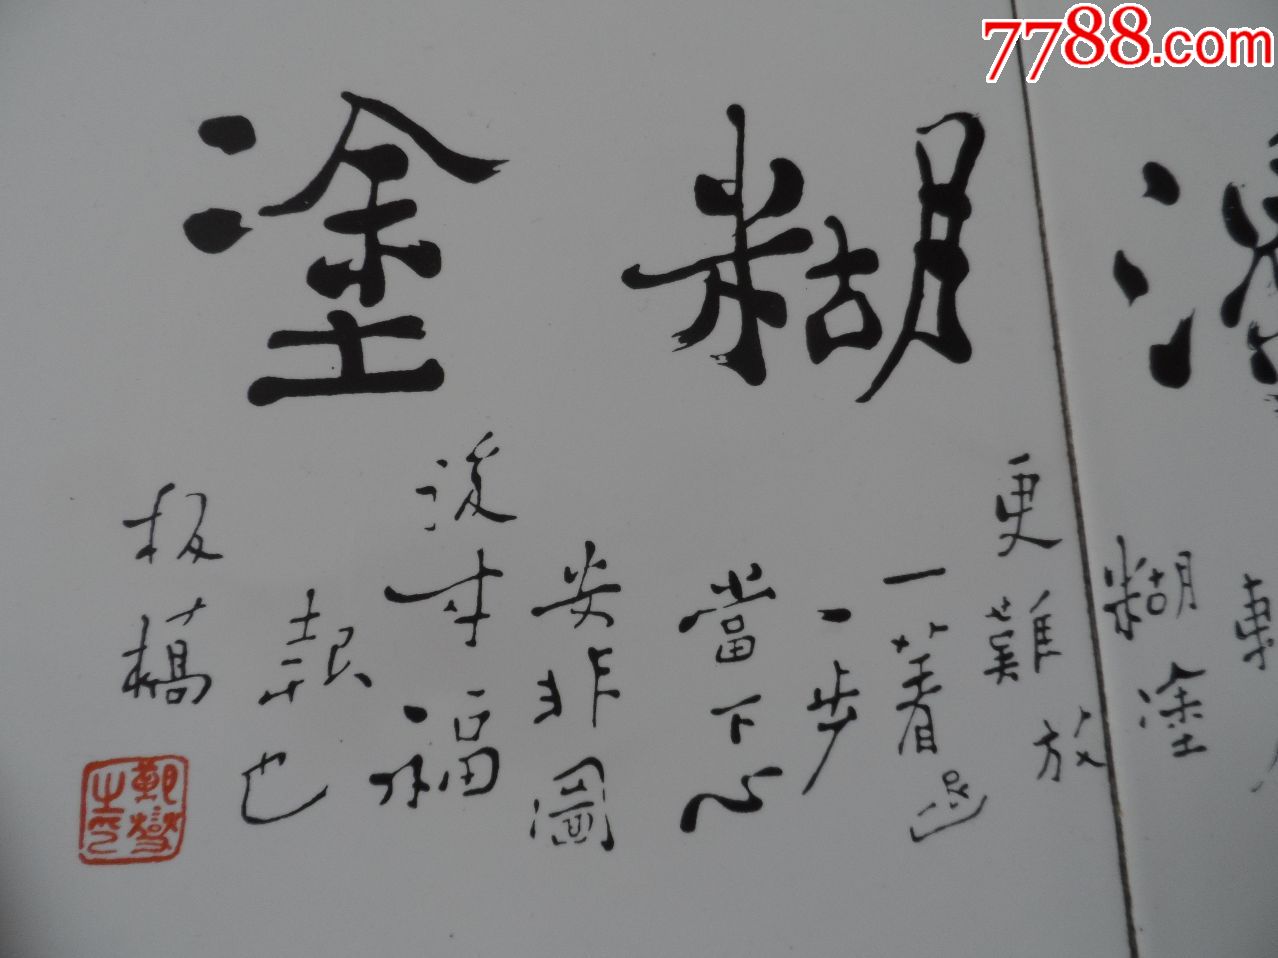 7788.com
糊塗
糊塗
更難放
一著退
一步
當下心
安非圖
後来福
報也
板橋
鄭燮之印